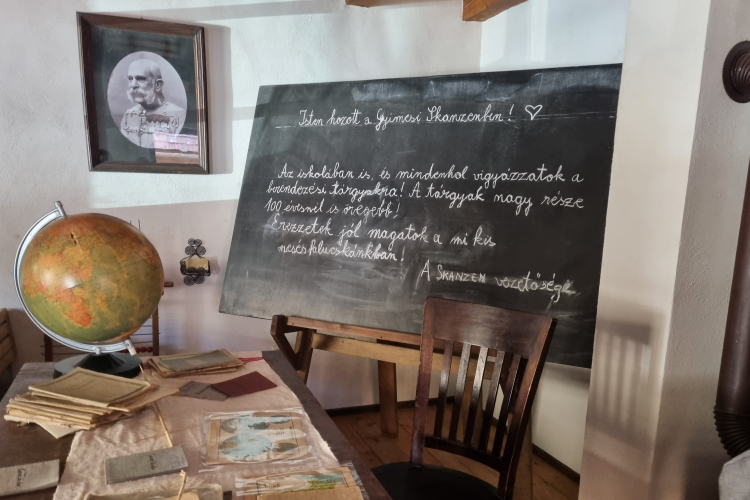 Isten hozott a Gyimesi Skanzenben! ♡
Az iskolában is, és mindenhol vigyázzatok a
berendezési tárgyakra! A tárgyak nagy része
100 évesnél is öregebb!
Érezzétek jól magatok a mi kis
mesefalucskánkban!
A SKANZEN vezetősége